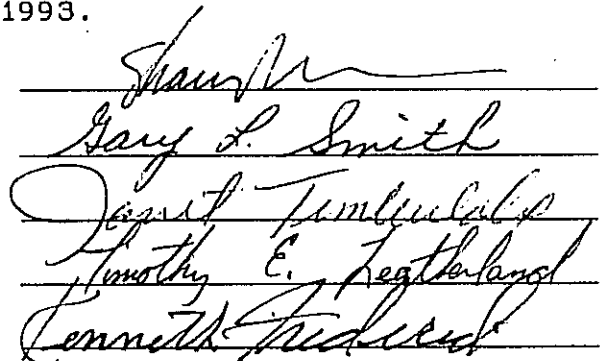 1993.
Shawn
Gary L. Smith
Janet Timberlake
Timothy E. Leatherland
Kenneth Frederick